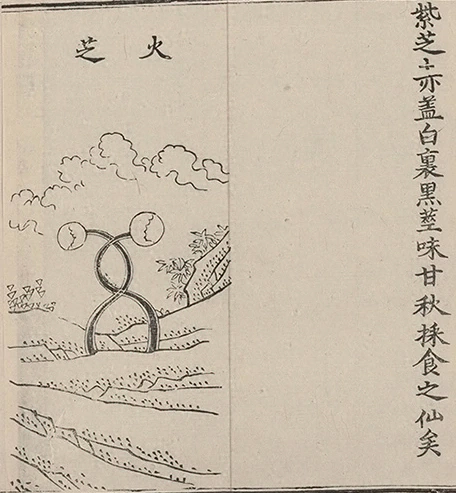 紫芝赤盖白裏黑莖味甘秋採食之仙矣
火芝